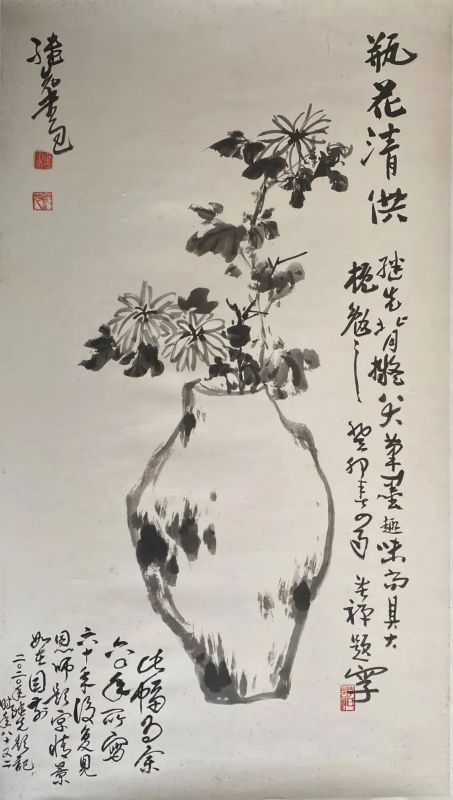 瓶花清供
继先背拟八大笔墨趣味而具大
挽劲之 癸卯春四月 苦禅题字
继先画
此幅为余
六〇年所写
六十年后复见
恩师题字情景
如在目前
二〇二〇年继先题记
时年八十又二